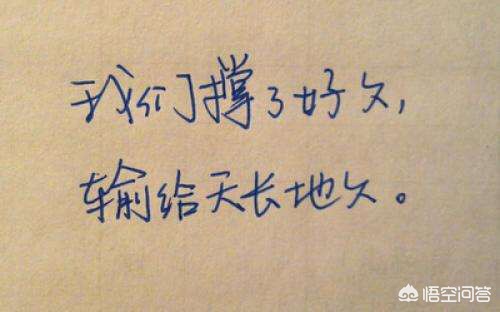 我们撑了好久，
输给天长地久。
悟空问答